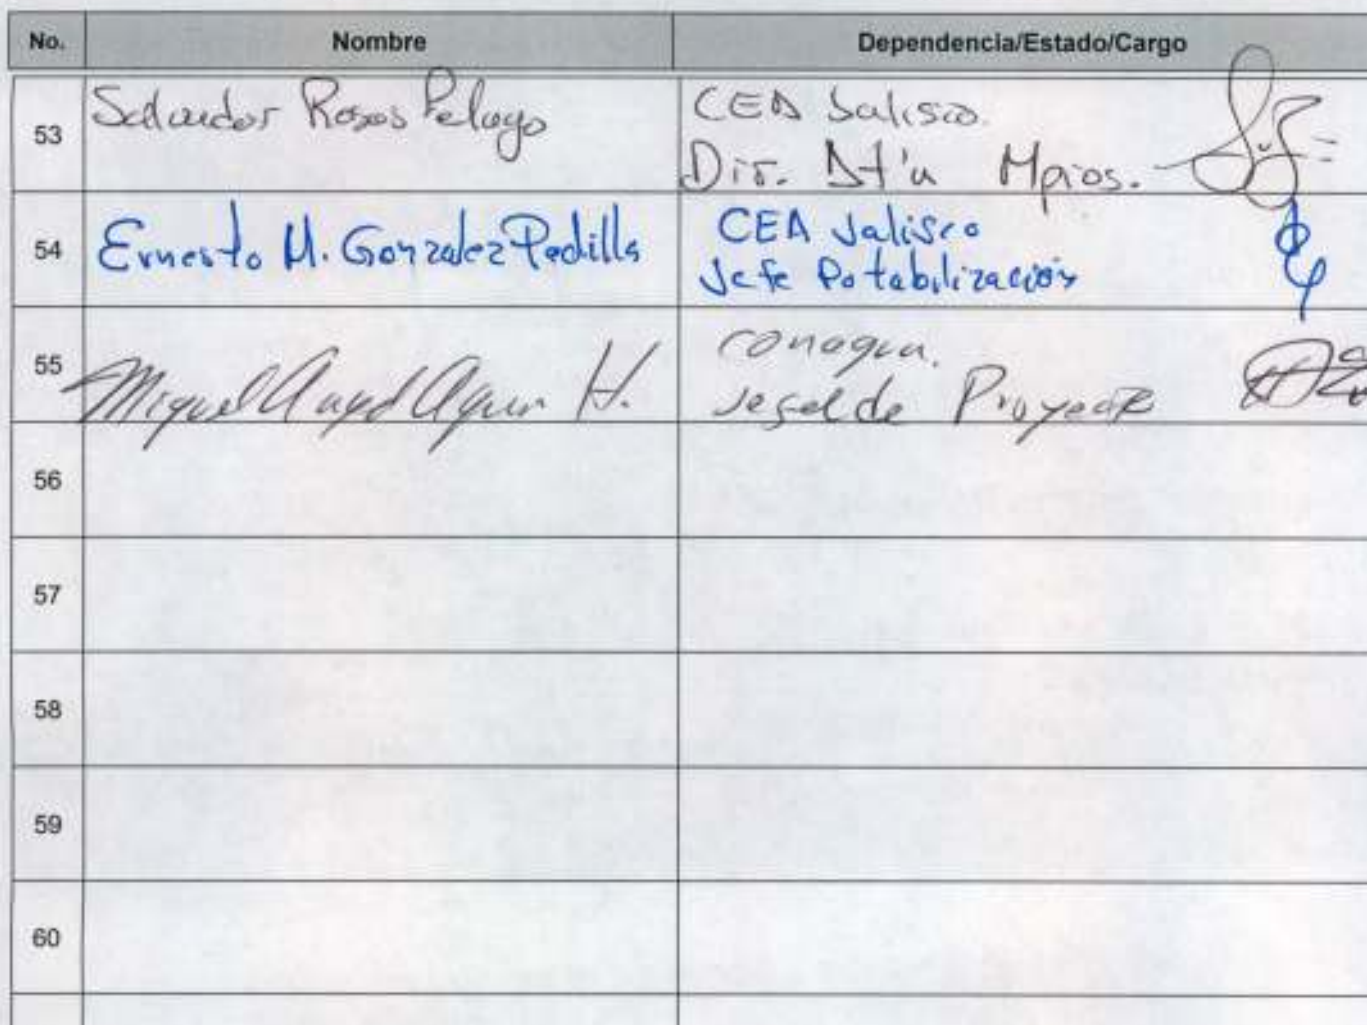 No. Nombre Dependencia/Estado/Cargo
53 Salvador Rosas Pelayo CEA Jalisco.
Dir. At'n Mpios.
54 Ernesto M. Gonzalez Padilla CEA Jalisco
Jefe Potabilización
55 Miguel Angel H. conagua.
de Proyecto
56
57
58
59
60